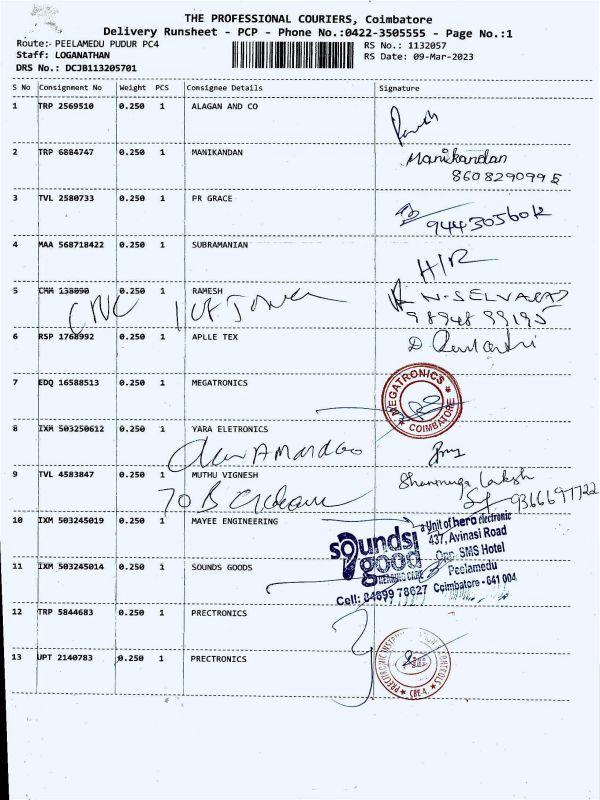 THE PROFESSIONAL COURIERS, Coimbatore
Delivery Runsheet - PCP - Phone No.:0422-3505555 - Page No.:1
Route:- PEELAMEDU PUDUR PC4 RS No.: 1132057
Staff: LOGANATHAN RS Date: 09-Mar-2023
DRS No.: DCJB113205701
S No Consignment No Weight PCS Consignee Details Signature
1 TRP 2569510 0.250 1 ALAGAN AND CO
2 TRP 6884747 0.250 1 MANIKANDAN Manikandan
8608290995
3 TVL 2580733 0.250 1 PR GRACE
4 MAA 568718422 0.250 1 SUBRAMANIAN H/R
5 CMM 138090 0.250 1 RAMESH N-SELVARAJ
98948 99195
6 RSP 1768992 0.250 1 APLLE TEX
7 EDQ 16588513 0.250 1 MEGATRONICS MEGATRONICS COIMBATORE
8 IXM 503250612 0.250 1 YARA ELETRONICS
9 TVL 4583847 0.250 1 MUTHU VIGNESH
70 B
9366697722
10 IXM 503245019 0.250 1 MAYEE ENGINEERING
a Unit of hero electronic
sounds good 437, Avinasi Road
HEARING CARE Opp. SMS Hotel
11 IXM 503245014 0.250 1 SOUNDS GOODS Peelamedu
Cell: 84899 78627 Coimbatore - 641 004
12 TRP 5844683 0.250 1 PRECTRONICS
13 UPT 2140783 0.250 1 PRECTRONICS
CBE-4